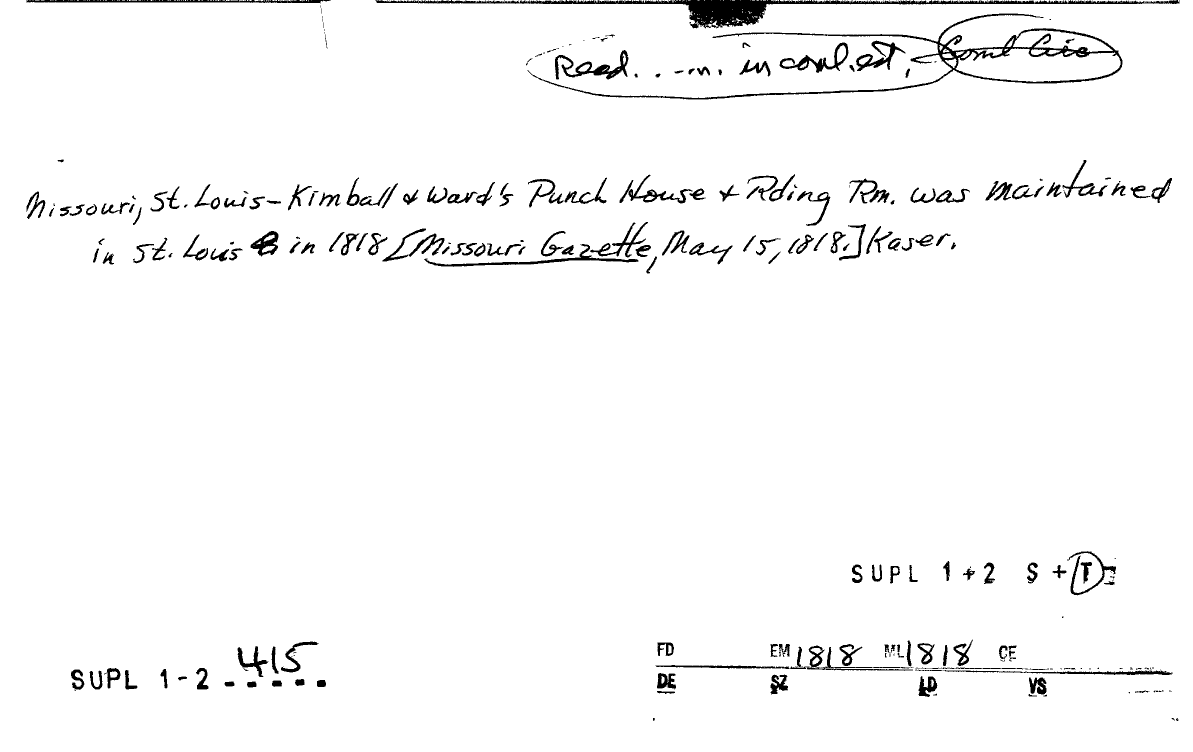 Read. . -m. in coml. est.
Missouri, St. Louis-Kimball & Ward's Punch House + Rding Rm. was maintained
in St. Louis in 1818 [Missouri Gazette, May 15, 1818.] Kaser.
SUPL 1+2 S+T
SUPL 1-2 415
FD EM 1818 ML 1818 CE
DE SZ LD VS